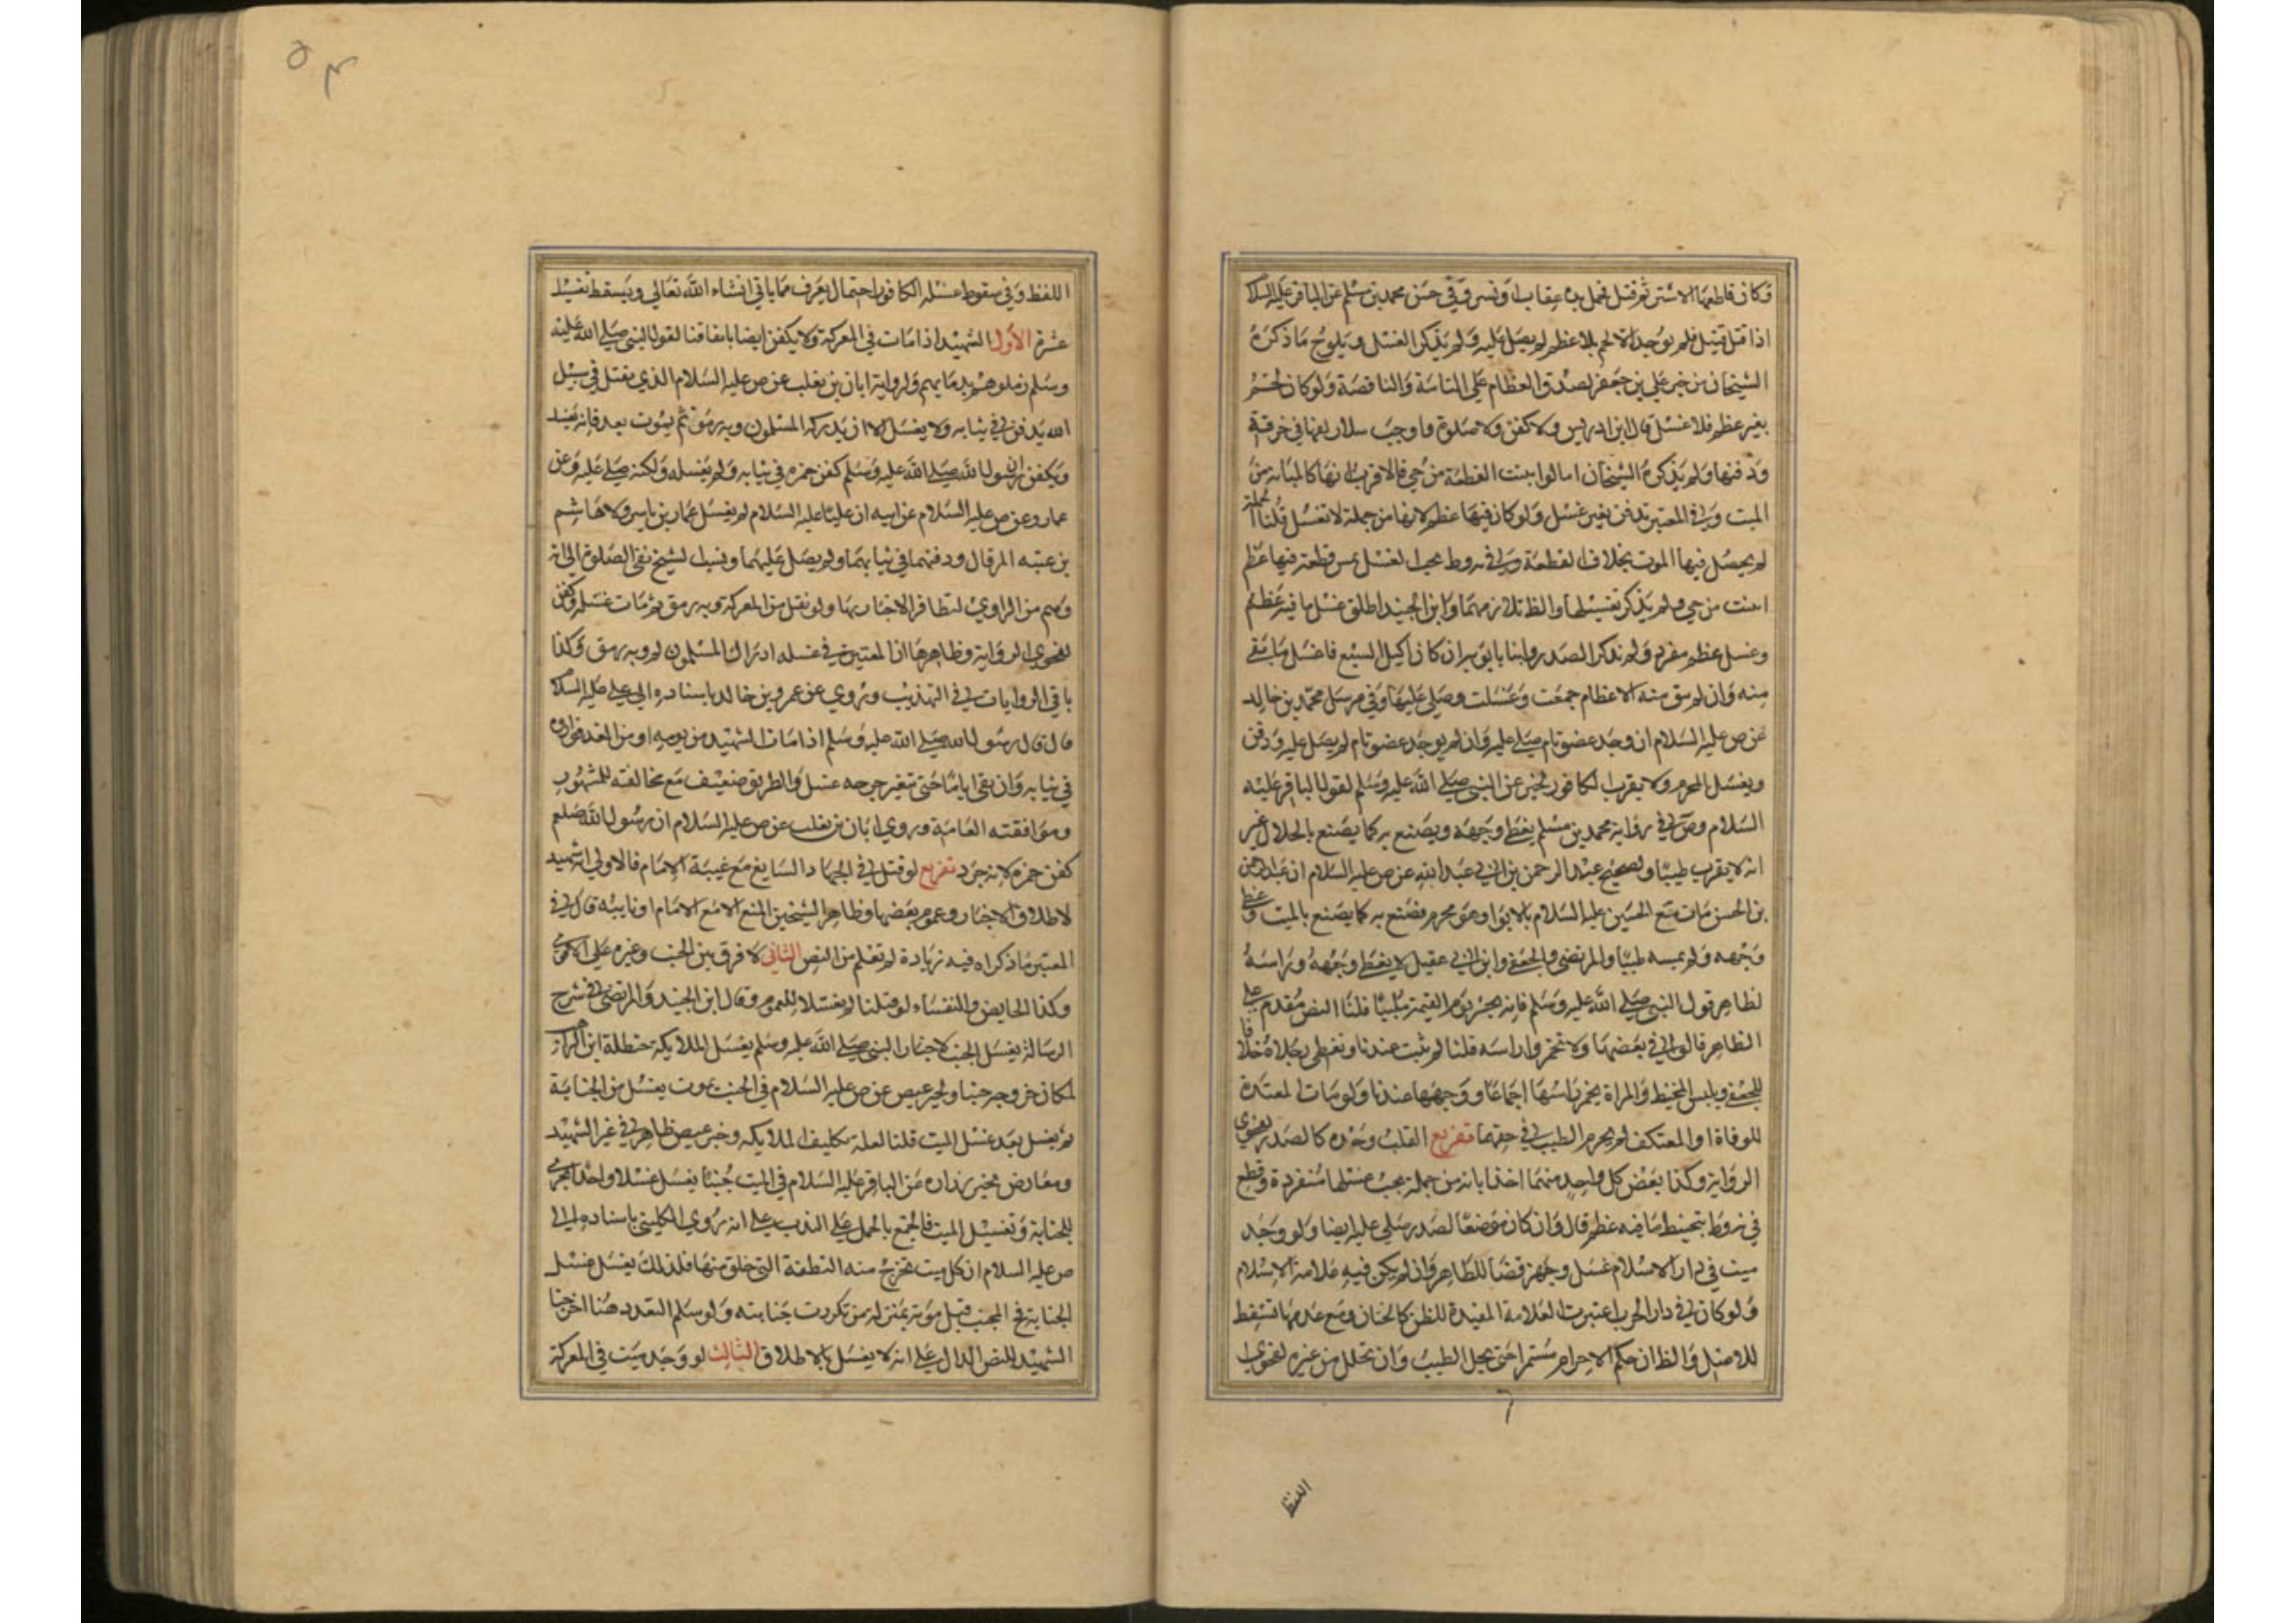 وكان قاطعها الاشتر ثم قتل فحمل يده عقاب او نسر وفي حسن محمد بن مسلم عن الباقر عليه السلام
اذا قتل قتيل فلم يوجد الا لحم بلا عظم لم يصل عليه ولم يذكر الغسل ويلوح ما ذكره
الشيخان من خبر علي بن جعفر لصدق العظام على التامة والناقصة ولو كان لحم
بغير عظم فلا غسل قال ابن ادريس ولا كفن ولا صلوة واوجب سلار لفها في خرقة
ودفنها ولم يذكره الشيخان اما لو ابينت القطعة من حي فالاقرب انها كالمبانة من
الميت و في المعتبر تدفن بغير غسل ولو كان فيها عظم لانها من جملة لا تغسل قلنا الجملة
لم يحصل فيها الموت بخلاف القطعة و في يجب الغسل بمس قطعة فيها عظم
ابينت من حي ولم يذكر تغسيلها والظ تلازمهما وابن الجنيد اطلق غسل ما فيه عظم
وغسل عظم مفرد ولم يذكر الصدر وابنا بابويه ان كان اكيل السبع فاغسل ما بقي
منه وان لم يبق منه الا عظام جمعت وغسلت وصلي عليها وفي مرسل محمد بن خالد
عن ص عليه السلام ان وجد عضو تام صلي عليه وان لم يوجد عضو تام لم يصل عليه ودفن
ويغسل المحرم ولا يقرب الكافور لخبر عن النبي صلى الله عليه وسلم لقول الباقر عليه
السلام وص في رواية محمد بن مسلم يغطى وجهه ويصنع به كما يصنع بالحلال غير
انه لا يقرب طيبا ولصحيح عبد الرحمن بن ابي عبد الله عن ص عليه السلام ان عبد الرحمن
بن الحسن مات مع الحسين عليه السلام بالابوا وهو محرم فصنع به كما يصنع بالميت وغطى
وجهه ولم يمسه طيبا والمرتضى والجعفي وابن ابي عقيل لا يغطى وجهه وراسه
لظاهر قول النبي صلى الله عليه وسلم فانه يحشر يوم القيمة ملبيا قلنا النص مقدم على
الظاهر قالوا في بعضها ولا تخمروا راسه قلنا لم يثبت عندنا وتغطى رجلاه خلافا
للجعفي ويلبس المخيط والمراة يخمر راسها اجماعا ووجهها عندنا ولو ماتت المعتدة
للوفاة او المعتكف لم يحرم الطيب في حقهما تفريع القلب وحده كالصدر لفحوى
الرواية وكذا بعض كل واحد منهما اخذا بانه من جملة يجب غسلها منفردة وقطع
في بتحنيط ما فيه عظم قال وان كان موضع الصدر صلي عليه ايضا ولو وجد
ميت في دار الاسلام غسل وجهز قضا للظاهر وان لم يكن فيه علامة الاسلام
ولو كان في دار الحرب اعتبرت العلامة المفيدة للظن كالختان ومع عدمها تسقط
للاصل والظ ان حكم الاحرام مستمر حتى يحل الطيب وان تحلل من غيره لفحوى
اللفظ
٥٣
اللفظ وفي سقوط غسله الكافور احتمال يعرف مما ياتي انشاء الله تعالى ويسقط تغسيل
عشرة الاول الشهيد اذا مات في المعركة ولا يكفن ايضا باتفاقنا لقول النبي صلى الله عليه
وسلم زملوهم بدمايهم ولرواية ابان بن تغلب عن ص عليه السلام الذي يقتل في سبيل
الله يدفن في ثيابه ولا يغسل الا ان يدركه المسلمون وبه رمق ثم يموت بعد فانه يغسل
ويكفن ان رسول الله صلى الله عليه وسلم كفن حمزه في ثيابه ولم يغسله ولكنه صلى عليه وعن
عمار وعن ص عليه السلام عن ابيه ان عليا عليه السلام لم يغسل عمار بن ياسر ولا هاشم
بن عتبه المرقال ودفنهما في ثيابهما ولم يصل عليهما ونسب الشيخ نفي الصلوة الى انه
وهم من الراوي لتظافر الاخبار بها ولو نقل من المعركة وبه رمق ثم مات غسل وكفن
لفحوى الرواية وظاهرها ان المعتبر في غسله ادراك المسلمون له وبه رمق وكذا
باقي الروايات في التهذيب وروي عن عمرو بن خالد باسناده الى علي عليه السلام
قال قال رسول الله صلى الله عليه وسلم اذا مات الشهيد من يومه او من الغد فواروه
في ثيابه وان بقي اياما حتى تتغير جرحه غسل والطريق ضعيف مع مخالفته للمشهور
وموافقته العامة وروى ابان بن تغلب عن ص عليه السلام ان رسول الله صلعم
كفن حمزه لانه جرد تفريع لو قتل في الجهاد السايغ مع غيبة الامام فالاولى انه شهيد
لاطلاق الاخبار وعموم بعضها وظاهر الشيخين المنع الا مع الامام او نايبه قال في
المعتبر ما ذكراه فيه زيادة لم تعلم من النص الثاني لا فرق بين الجنب وغيره على الاقوى
وكذا الحايض والنفساء لو قتلتا لم يغتسلا للعموم وقال ابن الجنيد والمرتضى في شرح
الرسالة يغسل الجنب لاخبار النبي صلى الله عليه وسلم بغسل الملايكة حنظلة ابن الراهب
لمكان خروجه جنبا ولخبر عيص عن ص عليه السلام في الجنب يموت يغسل من الجنابة
ثم يغسل بعد غسل الميت قلنا لعله تكليف الملايكه وخبر عيص ظاهر في غير الشهيد
ومعارض بخبر زراره عن الباقر عليه السلام في الميت جنبا يغسل غسلا واحدا يجزي
للجنابة وتغسيل الميت فالجمع بالحمل على الندب على انه روى الكليني باسناده الى
ص عليه السلام ان كل ميت تخرج منه النطفة التي خلق منها فلذلك يغسل غسل
الجنابة فح المجنب قبل موته بمنزلة من تكررت جنابته ولو سلم التعدد هنا اخرجنا
الشهيد للنص الدال على انه لا يغسل بالاطلاق الثالث لو وجد ميت في المعركة